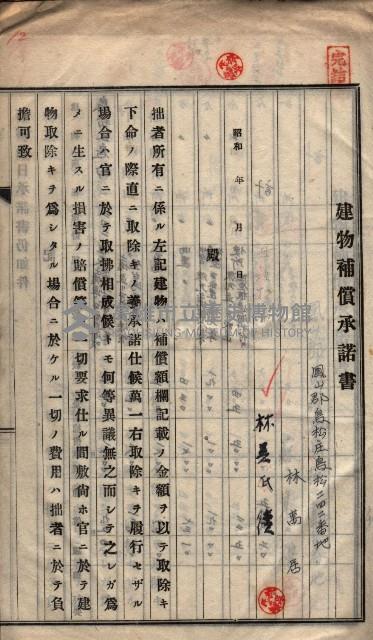 建物補償承諾書
鳳山郡鳥松庄鳥松二四二番地
林萬居
林吳氏儉
殿
昭和　年　月　日
拙者所有ニ係ル左記建物ハ補償額欄記載ノ金額ヲ以テ取除キ
下命ノ際直ニ取除キノ義承諾仕候萬一右取除キヲ履行セザル
場合ハ官ニ於テ取拂相成候トモ何等異議無之而シテ之レガ為
メニ生スル損害ノ賠償等一切要求仕ル間敷尚ホ官ニ於テ建
物取除キヲ為シタル場合ニ於ケル一切ノ費用ハ拙者ニ於テ負
擔可致日承諾書仍如件
12